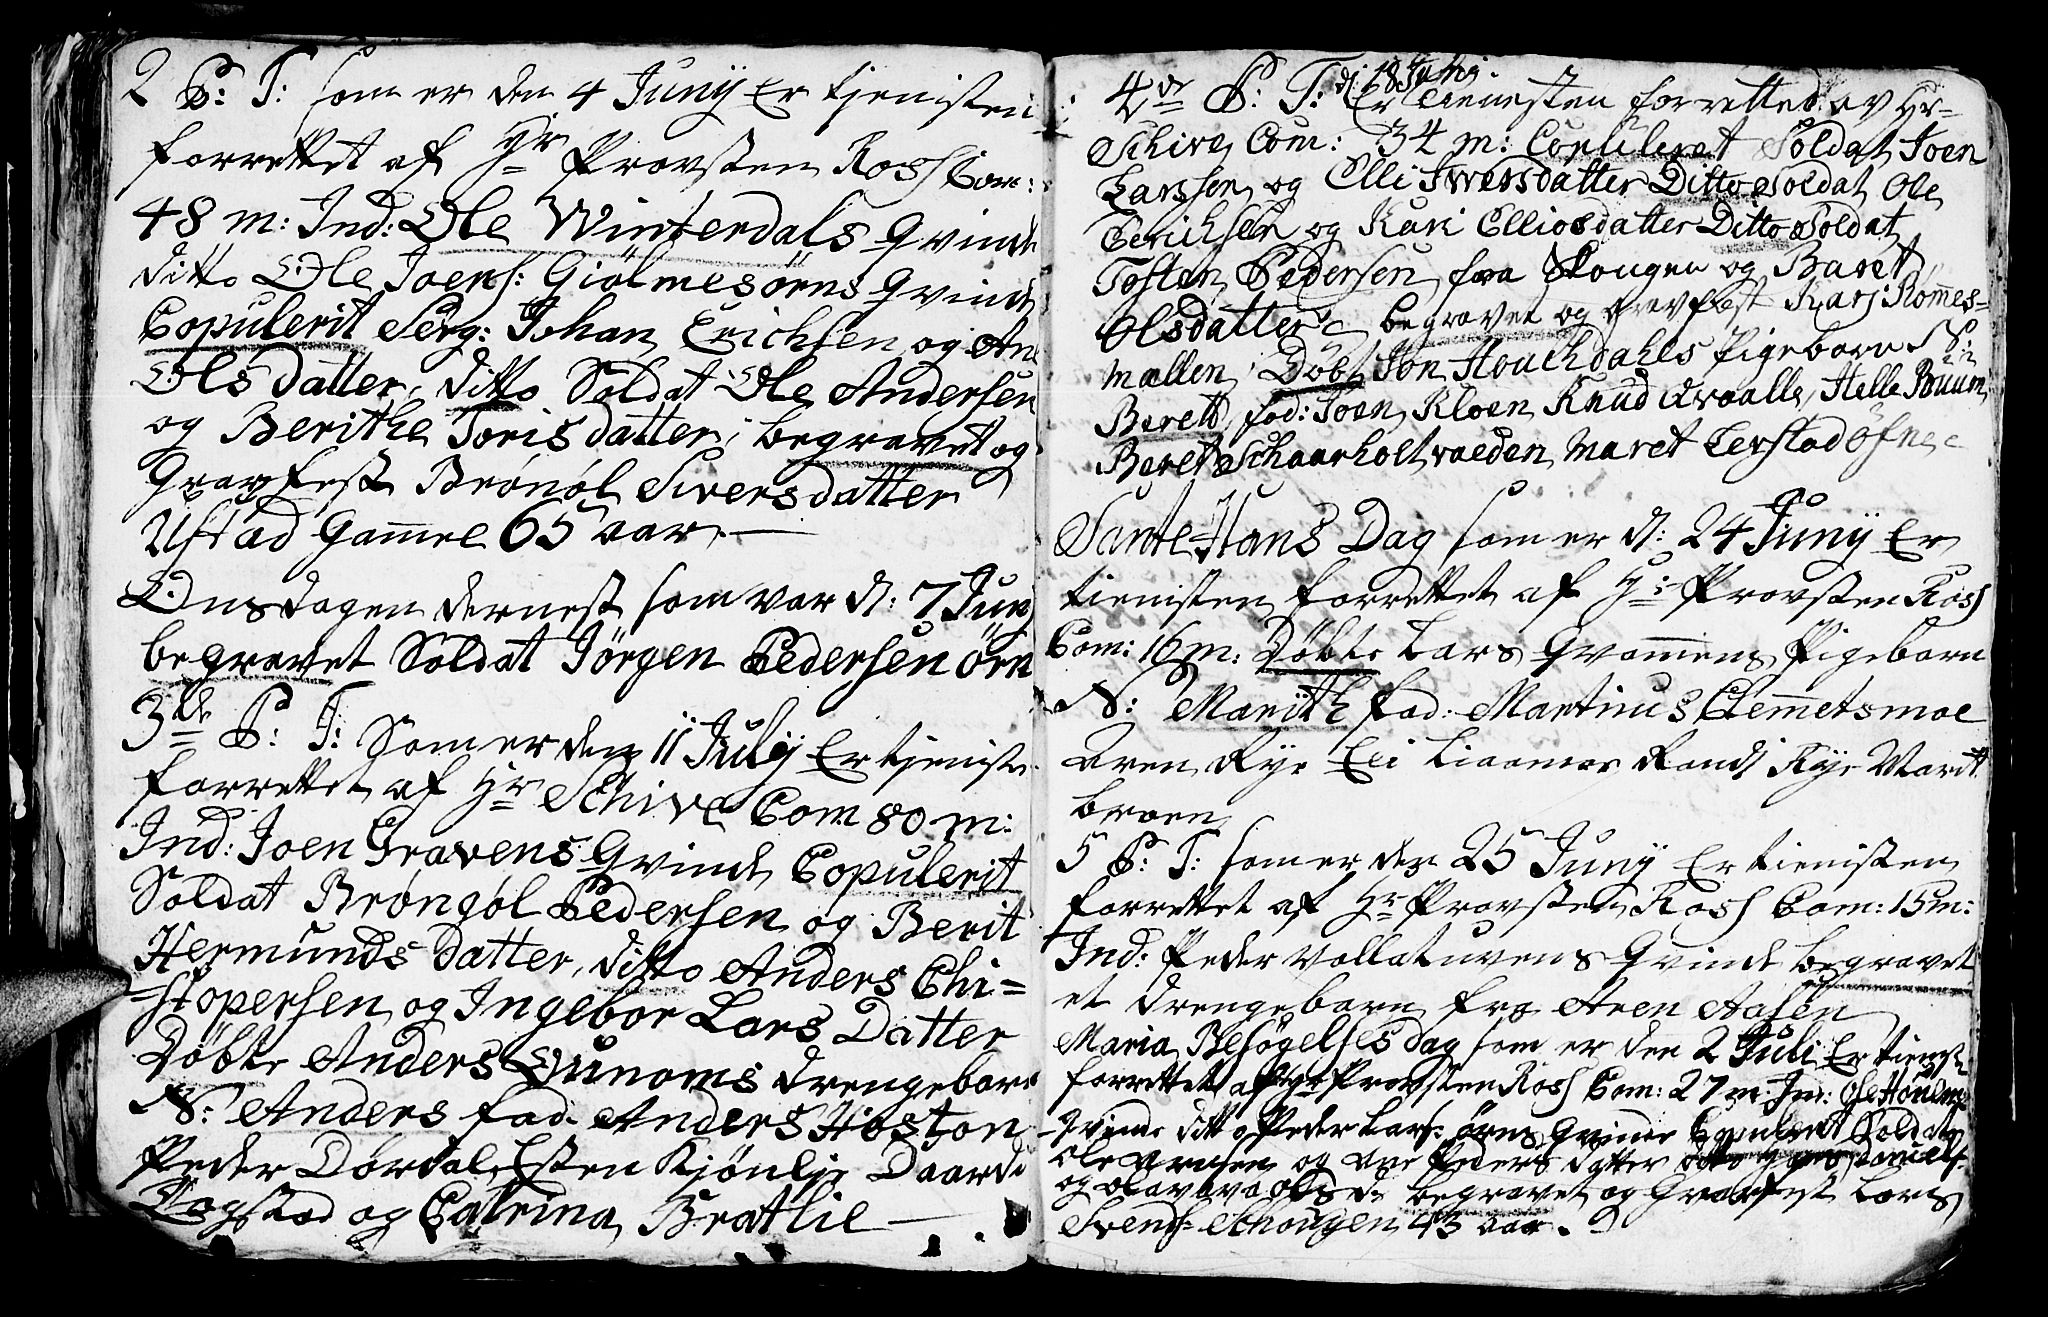 2 S: T: som er den 4 Junÿ Er tjenisten
forrettet af Hr Provsten Ross Com:
48 m: Ind: Ole Winterdals Qvinde
ditto Ole Joens: Giölmesörns Qvinde
Copulerit Serg: Johan Erichsen og An
Ols datter, ditto Soldat Ole Andersen
og Berithe Joris datter, begravet og
Gravfest Brönöl Sivers datter
Ustad Gam̄el 65 aar. —
Onsdagen dernest som var d: 7 Junj
begravet Soldat Jörgen Pedersen örn
3de S: T: Som er den 11 Julÿ Er tjenist
forrettet af Hr Schive Com 80 m:
Ind: Joen Gravens Qvinde Copulerit
Soldat Bröngöl Pedersen og Berit
Hermunds datter, ditto Anders Chi=
stopersen og Ingebor Lars Datter
Döbte Anders Qunoms drengebarn
N: Anders fad. Anders Hoston
Peder Dördal Esten Kjönlje Daarde
Vagstad og Catrina Bratlie —
4de S: T: dj 18 Juni. Er tienesten forretted av Hr
Schive Com: 34 m: Copuleret Soldat Joen
Larssen og Elli Iversdatter Ditto Soldat Ole
Erichsen og Kari Elliosdatter Ditto Soldat
Tosten Pedersen fra Skougen og Baret
Olsdatter begravet og gravfest Karj Rom̄es=
mællen Döbt Jon Houchdahls Pigebarn N:
Berett, fad: Joen Kloen Knud Hvaalle, Helle Bruun
Beret Schaarholtvæden, Maret Eerstad öfne
Sante Hans Dag som er d: 24 Junÿ Er
tienisten forrettet af Hr Provsten Ross
Com: 16 m: Döbte Lars Qvam̄ens Pigebarn
N: Marith fad: Martinus Clem̄etsmoe
Aren Rye Eli Liaamoe Randj Rÿe Marit
broen
5 S: T: som er den 25 Junÿ Er tienisten
forrettet af Hr Provsten Ross Com: 15 m:
Ind: Peder Vollatuvens Qvinde begravet
et drengebarn fra Aren Aasen
Maria Besögelses dag som er den 2 Juli Er tienist
forrettet af Hr Provsten Ross Com: 27 m: Ind: Ole
Qvinde ditto Peder Lars: örns Qvinde Copulerit Soldat
Ole og Ane Peders datter ditto Daniels:
og Olsd: begravet og Gravfest Lars
Svends: Schougen 43 aar.